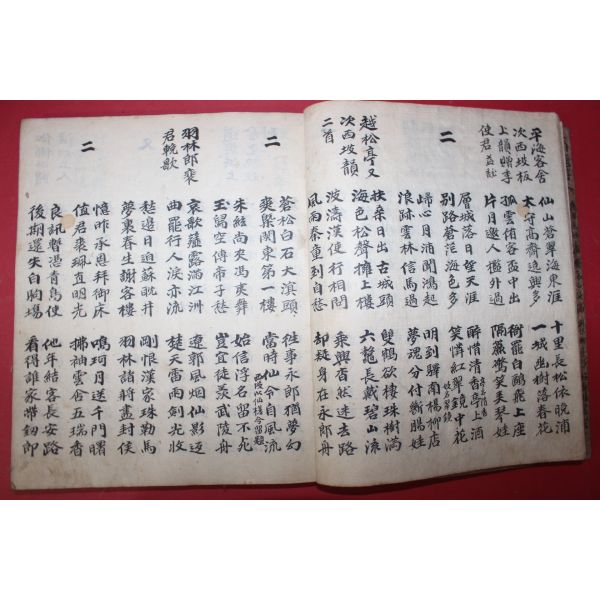 平海客舍
次西坡板
上韻贈李
使君益祉
仙山蒼翠海東涯
十里長松依晩浦
太守高齋逸興多
一城幽樹落春花
孤雲侑客盃中出
衙罷白鷗飛上座
片月邀人檻外過
隔簾鶯笑是琴娃
二
層城落日望天涯
醉惜清香亭上酒
別路蒼茫海色多
笑憐紅翠鏡中花
歸心月浦聞鴻起
明到驛南楊柳店
浪跡雲林信馬過
夢魂分付斷腸娃
越松亭又
次西坡韻
二首
扶桑日出古城頭
雙鶴欲棲珠樹滿
海色松聲擁上樓
六鰲長戴碧山流
波濤漢使行相問
乘興杳然迷去路
風雨秦童到自愁
却疑身在永郎舟
二
蒼松白石大溟頭
往事永郎猶夢幻
爽槩関東第一樓
當時仙令自風流
西坡以仙槎令留題
朱絃尚夾馮夷舞
始信浮名留不死
玉舄空傳帝子愁
豈宜徒羨武陵舟
羽林郎裵
君輓歌
哀歌薤露滿江洲
遼郭風烟仙影遠
曲罷行人淚亦流
楚天雷雨劍光收
愁邊日迫蘇耽井
剛恨漢家珠勒馬
夢裏春生謝客樓
羽林諸將盡封侯
二
憶昨承恩拜御床
鳴珂月送千門曙
值君裘珮直明光
拂袖雲含五瑞香
良訊暫憑青鳥使
他年結客長安路
後期還失白駒場
看得誰家帶劒郎